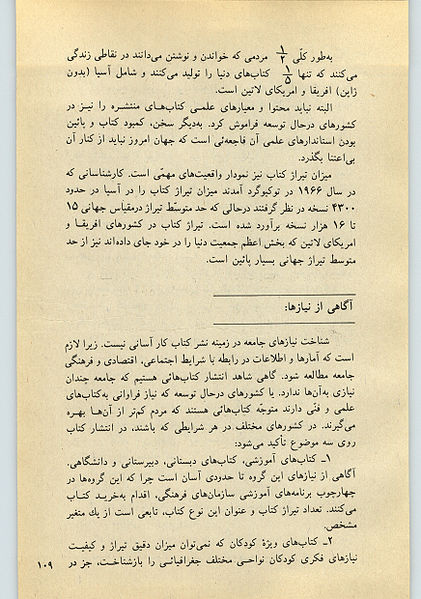 به‌طور کلّی ۱/۲ مردمی که خواندن و نوشتن می‌دانند در نقاطی زندگی
می‌کنند که تنها ۱/۵ کتاب‌های دنیا را تولید می‌کنند و شامل آسیا (بدون
ژاپن) افریقا و امریکای لاتین است.
البته نباید محتوا و معیارهای علمـی کتاب‌هـای منتشـره را نیـز در
کشورهای درحال توسعه فراموش کرد. به‌دیگر سخن، کمبود کتاب و پائین
بودن استاندارد‌های علمی آن فاجعه‌ئی است که جهان امروز نباید از کنار آن
بی‌اعتنا بگذرد.
میزان تیراژ کتاب نیز نمودار واقعیت‌های مهمّی است. کارشناسانی که
در سال ۱۹۶۶ در توکیوگرد آمدند میزان تیراژ کتاب را در آسیا در حدود
۴۳۰۰ نسخه در نظر گرفتند درحالی که حد متوسّط تیراژ درمقیاس جهانی ۱۵
تا ۱۶ هزار نسخه برآورد شده است. تیراژ کتاب در کشورهای افریقـا و
امریکای لاتین که بخش اعظم جمعیت دنیا را در خود جای داده‌اند نیز از حد
متوسط تیراژ جهانی بسیار پائین است.
آگاهی از نیازها:
شناخت نیازهای جامعه در زمینه نشر کتاب کار آسانی نیست. زیرا لازم
است که آمارها و اطلاعات در رابطه با شرایط اجتماعی، اقتصادی و فرهنگی
جامعه مطالعه شود. گاهی شاهد انتشار کتاب‌هائی هستیم که جامعه چندان
نیازی به‌آن‌ها ندارد. یا کشورهای درحال توسعه که نیاز فراوانی به‌کتاب‌های
علمی و فنّی دارند متوجّه کتاب‌هائی هستند که مردم کم‌تر از آن‌هـا بهـره
می‌گیرند. در کشورهای مختلف در هر شرایطی که باشند، در انتشار کتاب
روی سه موضوع تأکید می‌شود:
۱ـ کتاب‌های آموزشی، کتاب‌های دبستانی، دبیرستانی و دانشگاهی.
آگاهی از نیازهای این گروه تا حدودی آسان است چرا که این گروه‌ها در
چهارچوب برنامه‌های آموزشی سازمان‌های فرهنگی، اقدام به‌خریـد کتـاب
می‌کنند. تعداد تیراژ کتاب و عنوان این نوع کتاب، تابعی است از یك متغیر
مشخص.
۲ـ کتاب‌های ویژهٔ کودکان که نمی‌توان میزان دقیق تیراژ و کیفیت
نیازهای فکری کودکان نواحـی مختلف جغرافیائـی را بازشناخـت، جز در
۱۰۹